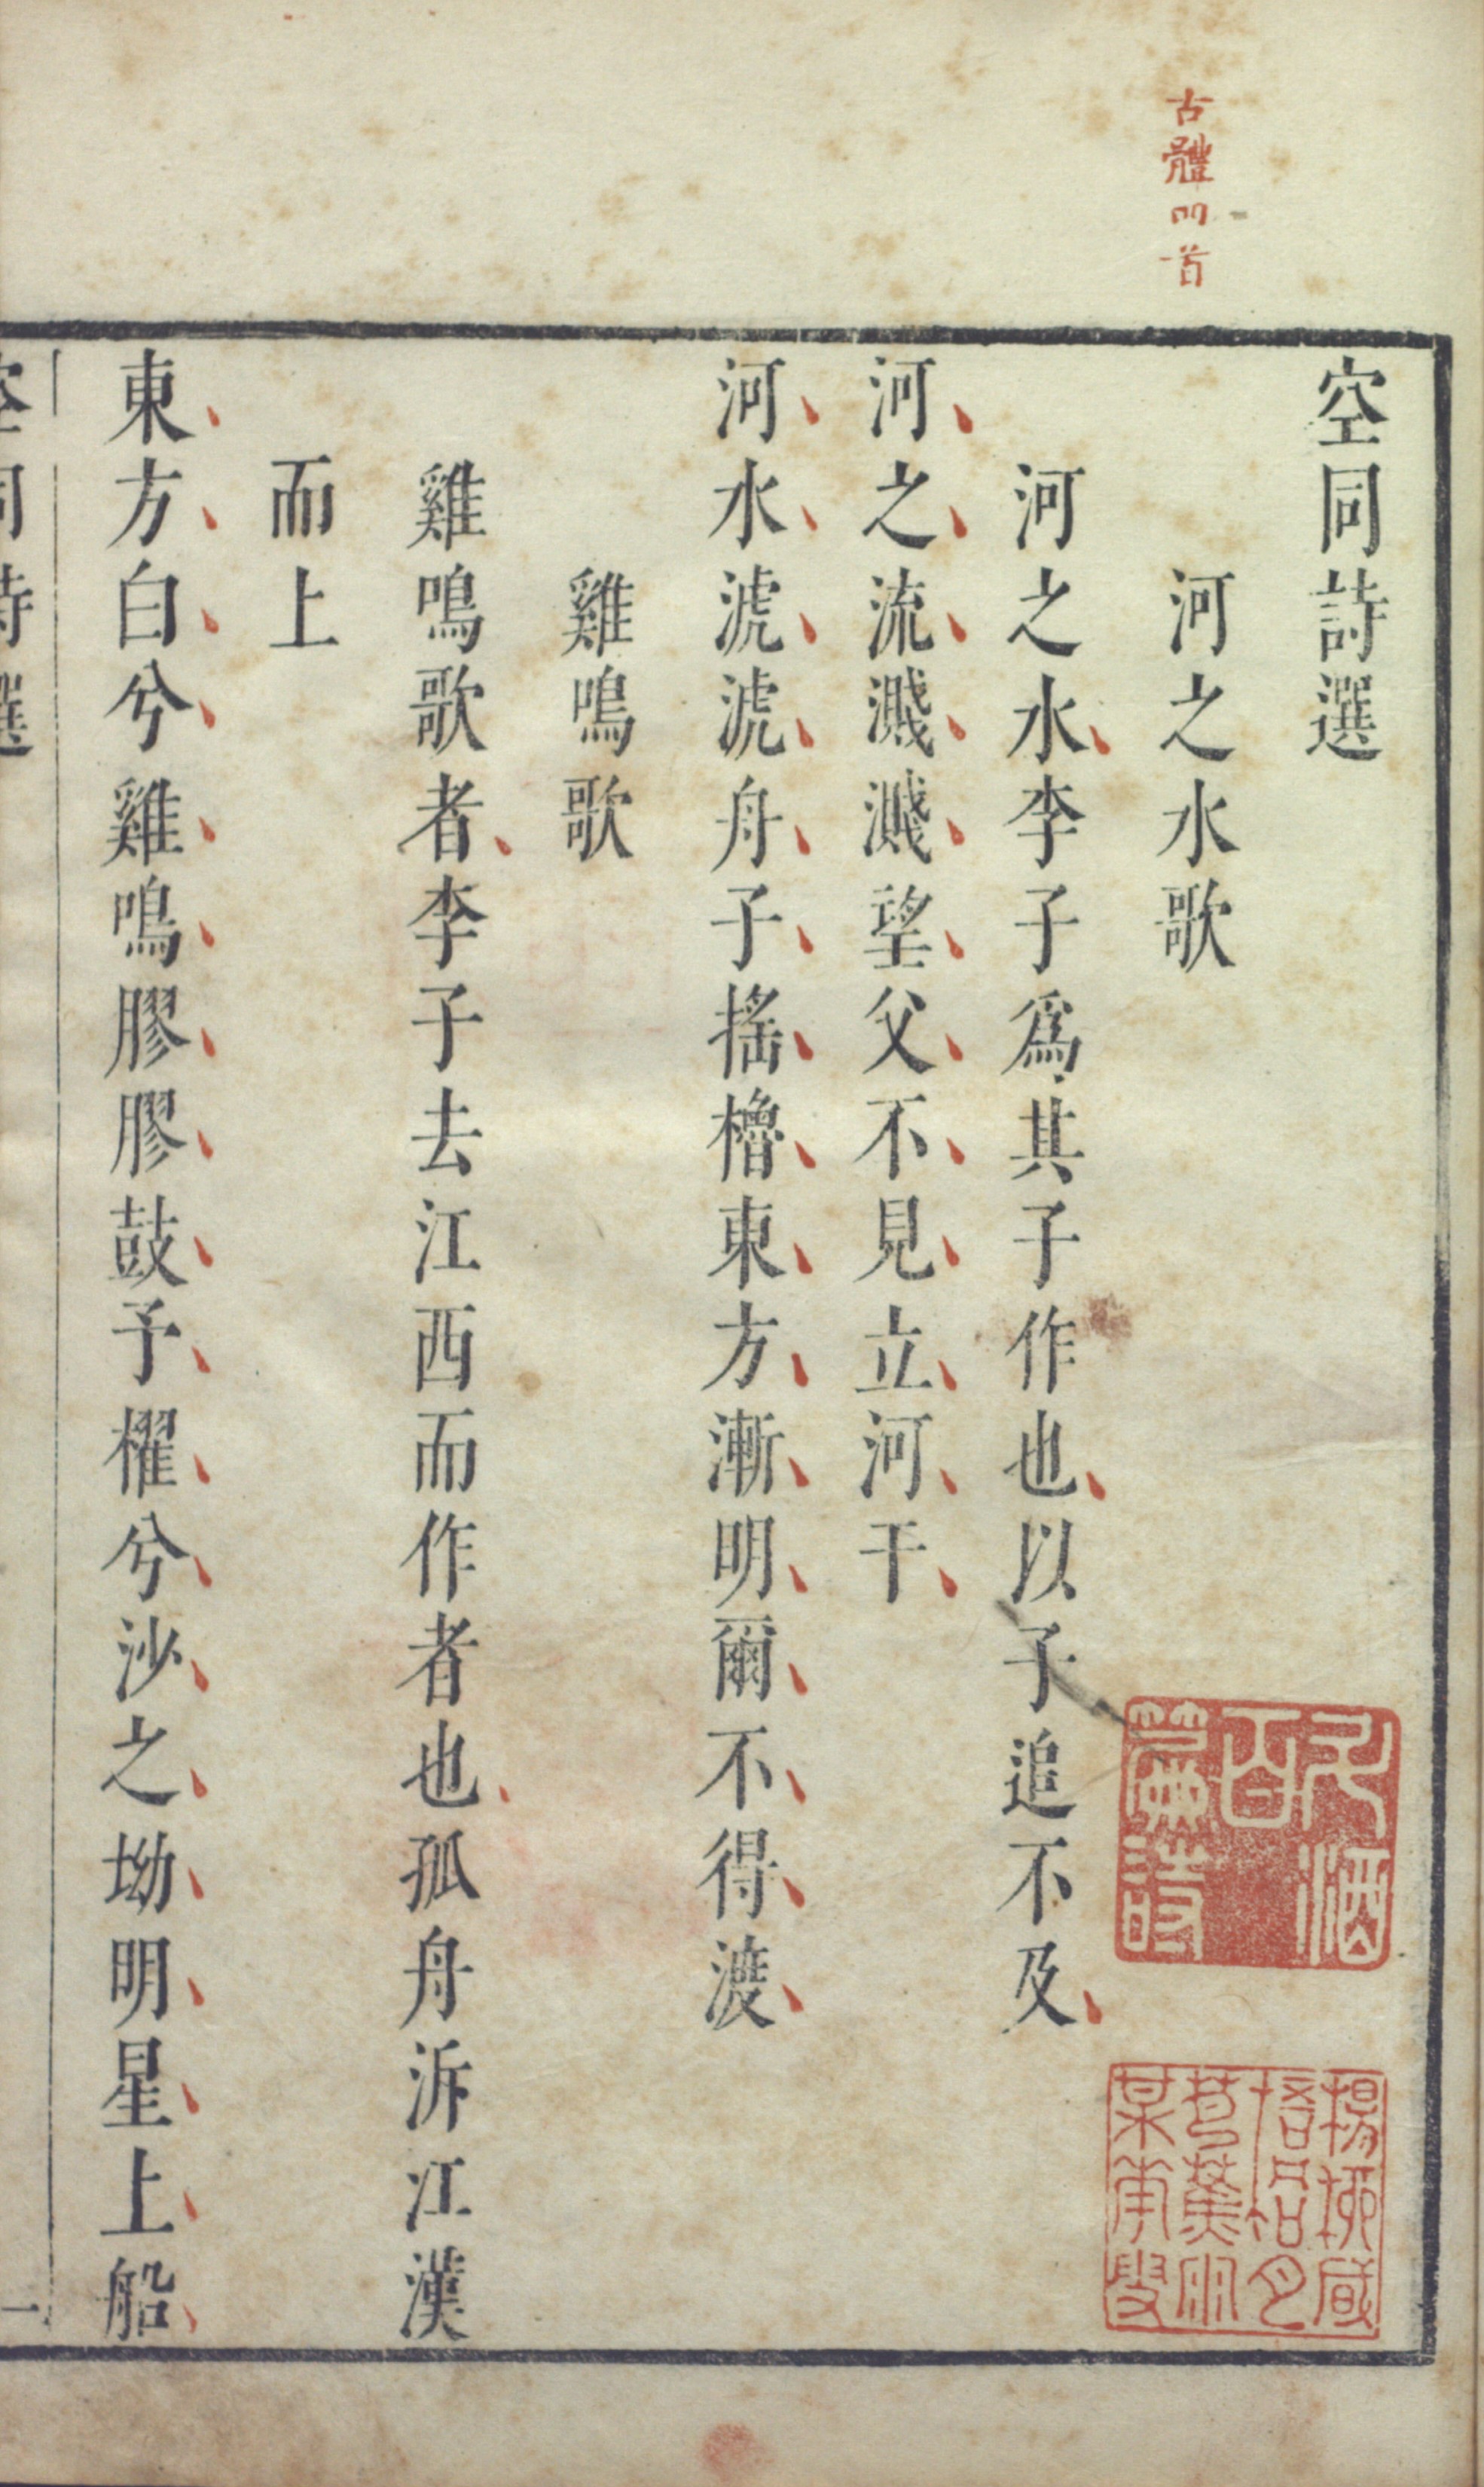 古體四首
空同詩選
河之水歌
河之水李子爲其子作也以子追不及
河之流濺濺望父不見立河干
河水淲淲舟子搖櫓東方漸明爾不得渡
雞鳴歌
雞鳴歌者李子去江西而作者也孤舟泝江漢
而上
東方白兮雞鳴膠膠鼓予櫂兮沙之坳明星上船
空同詩選
一